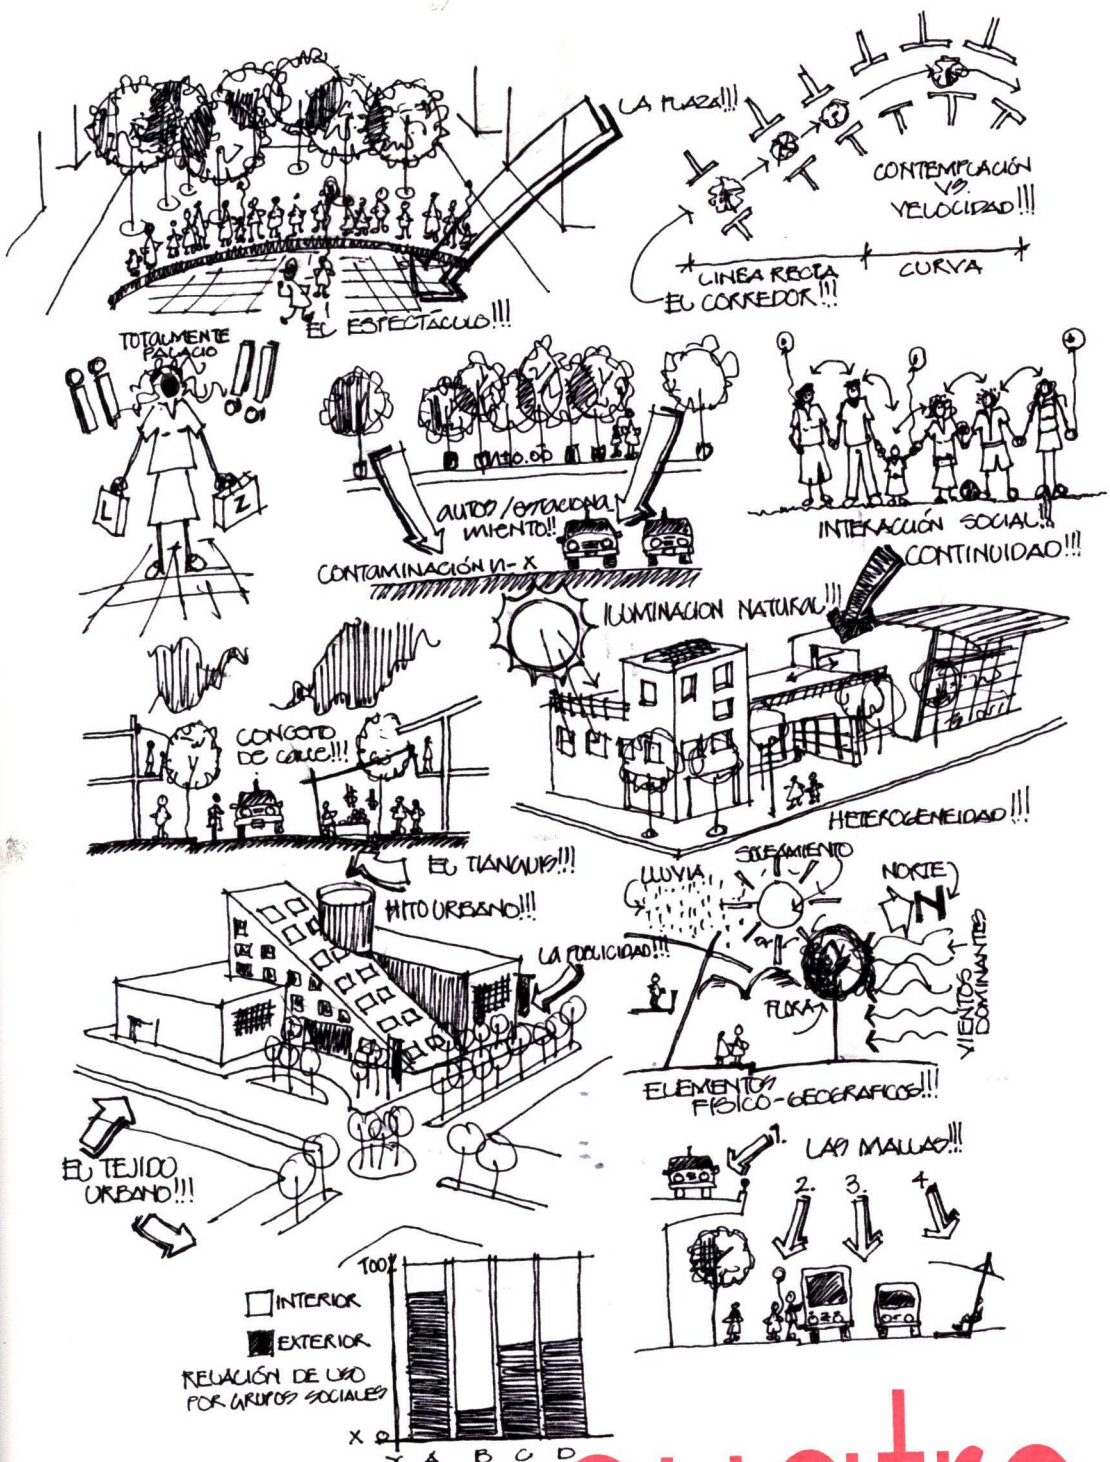 LA PLAZA!!!
CONTEMPLACIÓN
VS.
VELOCIDAD!!!
LINEA RECTA
CURVA
EL CORREDOR!!!
EL ESPECTÁCULO!!!
TOTALMENTE
PALACIO
L
Z
AUTOS/ESTACIONA
MIENTO!!
CONTAMINACIÓN N-X
INTERACCIÓN SOCIAL!!!
CONTINUIDAD!!!
ILUMINACION NATURAL!!!
DE CALLE!!!
HETEROGENEIDAD!!!
EL TIANGUIS!!!
HITO URBANO!!!
LA PUBLICIDAD!!!
LLUVIA
SOLEAMIENTO
NORTE
N
VIENTOS
DOMINANTES
FLORA
ELEMENTOS
FISICO-GEOGRAFICOS!!!
EL TEJIDO
URBANO!!!
LAS MALLAS!!!
1.
2.
3.
4.
100
INTERIOR
EXTERIOR
RELACIÓN DE USO
POR GRUPOS SOCIALES
X 0
Y A B C D
cuatro